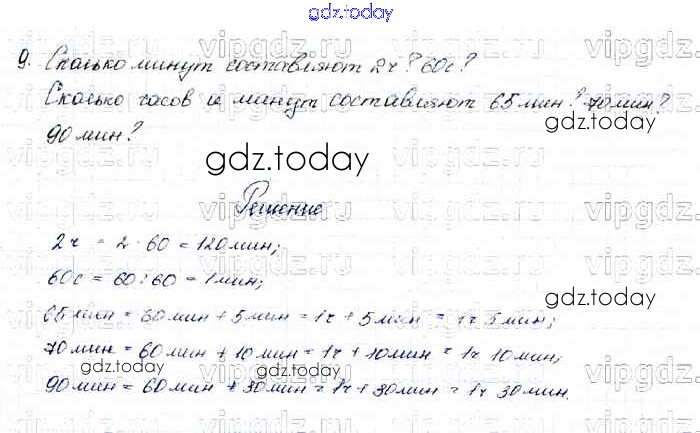 gdz.today
9. Сколько минут составляют 2ч? 60с?
Сколько часов и минут составляют 65мин? 70мин?
90мин?
gdz.today
Решение
2ч = 2 · 60 = 120мин;
60с = 60 : 60 = 1мин;
gdz.today
65мин = 60мин + 5мин = 1ч + 5мин = 1ч 5мин;
70мин = 60мин + 10мин = 1ч + 10мин = 1ч 10мин;
gdz.today
90мин = 60мин + 30мин = 1ч + 30мин = 1ч 30мин.
vipgdz.ru